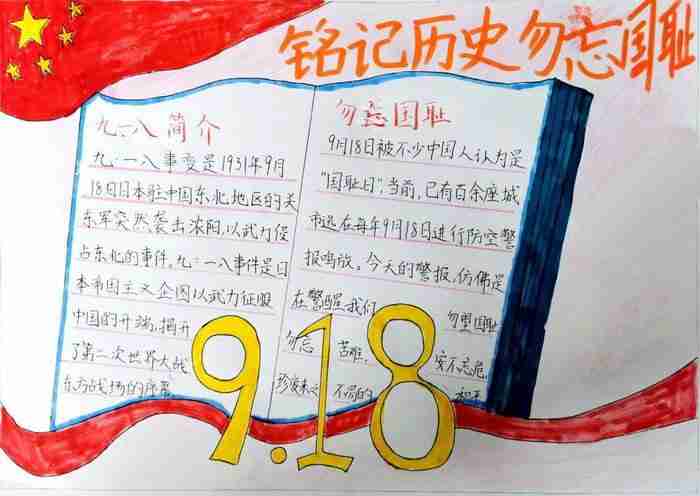 铭记历史勿忘国耻
九·一八简介
九·一八事变是1931年9月
18日日本驻中国东北地区的关
东军突然袭击沈阳,以武力侵
占东北的事件。九·一八事件是日
本帝国主义企图以武力征服
中国的开端,揭开
了第二次世界大战
东方战场的序幕
勿忘国耻
9月18日被不少中国人认为是
"国耻日",当前,已有百余座城
市选在每年9月18日进行防空警
报鸣放。今天的警报,仿佛是
在警醒我们 勿望国耻
勿忘 苦难, 安不忘危,
珍惜来之 不易的 和平
9.18